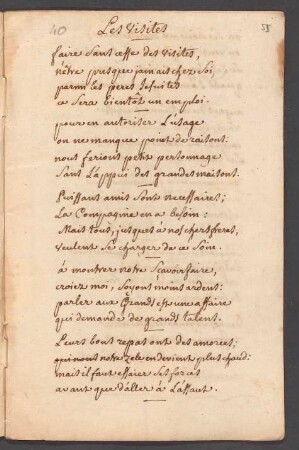 40
55
Les Visites
faire sans cesse des visites,
n'être presque jamais chez soi,
parmi les peres Jesuites
ce sera bientôt un emploi.
pour en autoriser L'usage
on ne manque point de raisons:
nous serions petit personnage
sans L'appui des grandes maisons.
Puissans amis sont necessaires;
La Compagnie en a besoin:
Mais tous, jusques a nos chers freres,
veulent se charger de ce soin.
à montrer notre sçavoir faire,
croiez moi, soyons moins ardent:
parler aux Grands est une affaire
qui demande de grands talent.
Leurs bout repas ont des amorces;
qui nous notre zele en devient plus chaud:
mais il faut essaier ses forces
avant que d'aller à L'assaut.